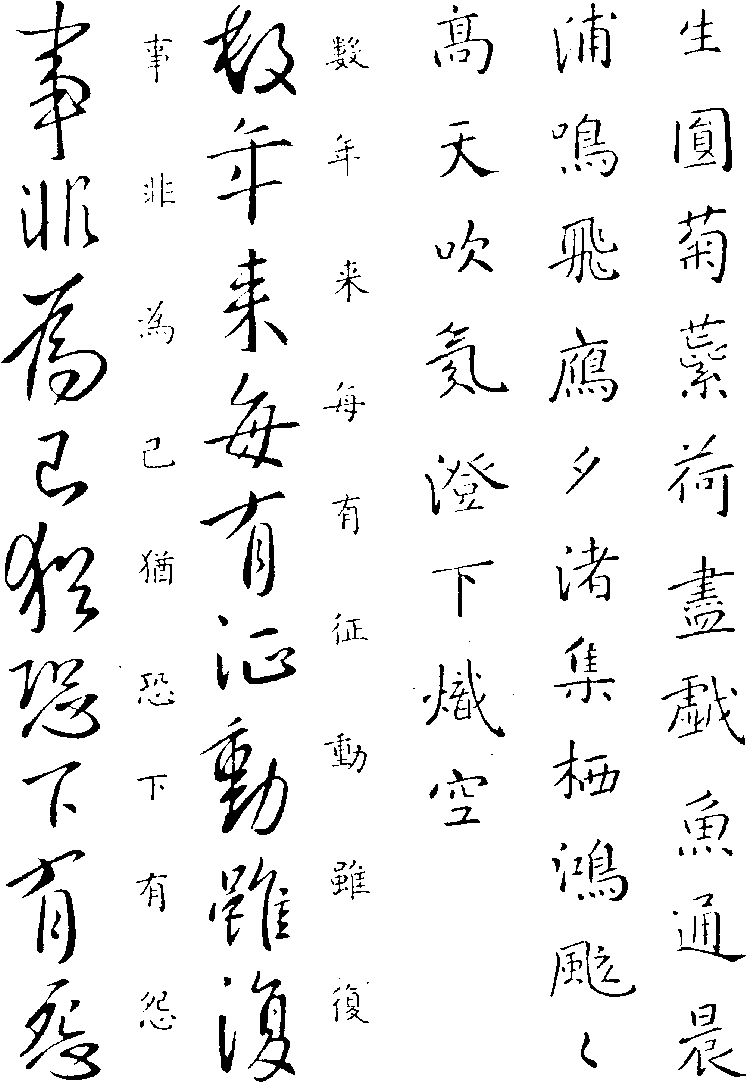 生圓菊蘂荷盡戯魚通晨
浦鳴飛鴈夕渚集栖鴻颯〻
高天吹氛澄下熾空
數年来每有征動雖復
数年来每有征動雖復
事非為己猶恐下有怨
事非為己猶恐下有怨